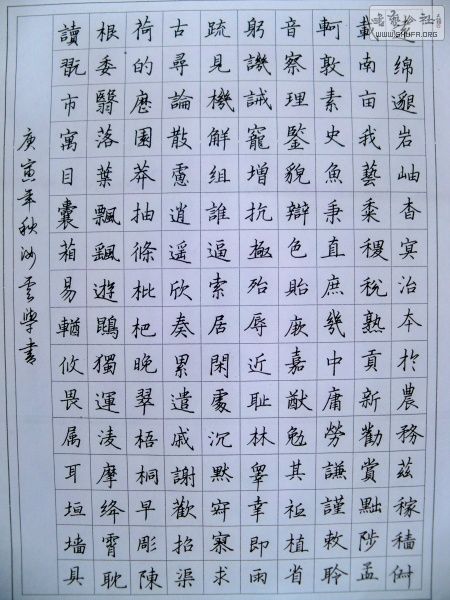 WWW.SHUFA.ORG
綿邈岩岫杳㝠治本於農務茲稼穡俶
載南畝我藝黍稷稅熟貢新勸賞黜陟孟
軻敦素史魚秉直庶幾中庸勞謙謹敕聆
音察理鑒貌辯色貽厥嘉猷勉其祗植省
躬譏誡寵增抗極殆辱近耻林皋幸即兩
疏見機解組誰逼索居閑處沉默寂寥求
古尋論散慮逍遥欣奏累遣戚謝歡招渠
荷的歷園莽抽條枇杷晚翠梧桐早彫陳
根委翳落葉飄颻遊鵾獨運凌摩絳霄耽
讀翫市寓目囊箱易輶攸畏属耳垣墙具
庚寅年秋沙雲學書